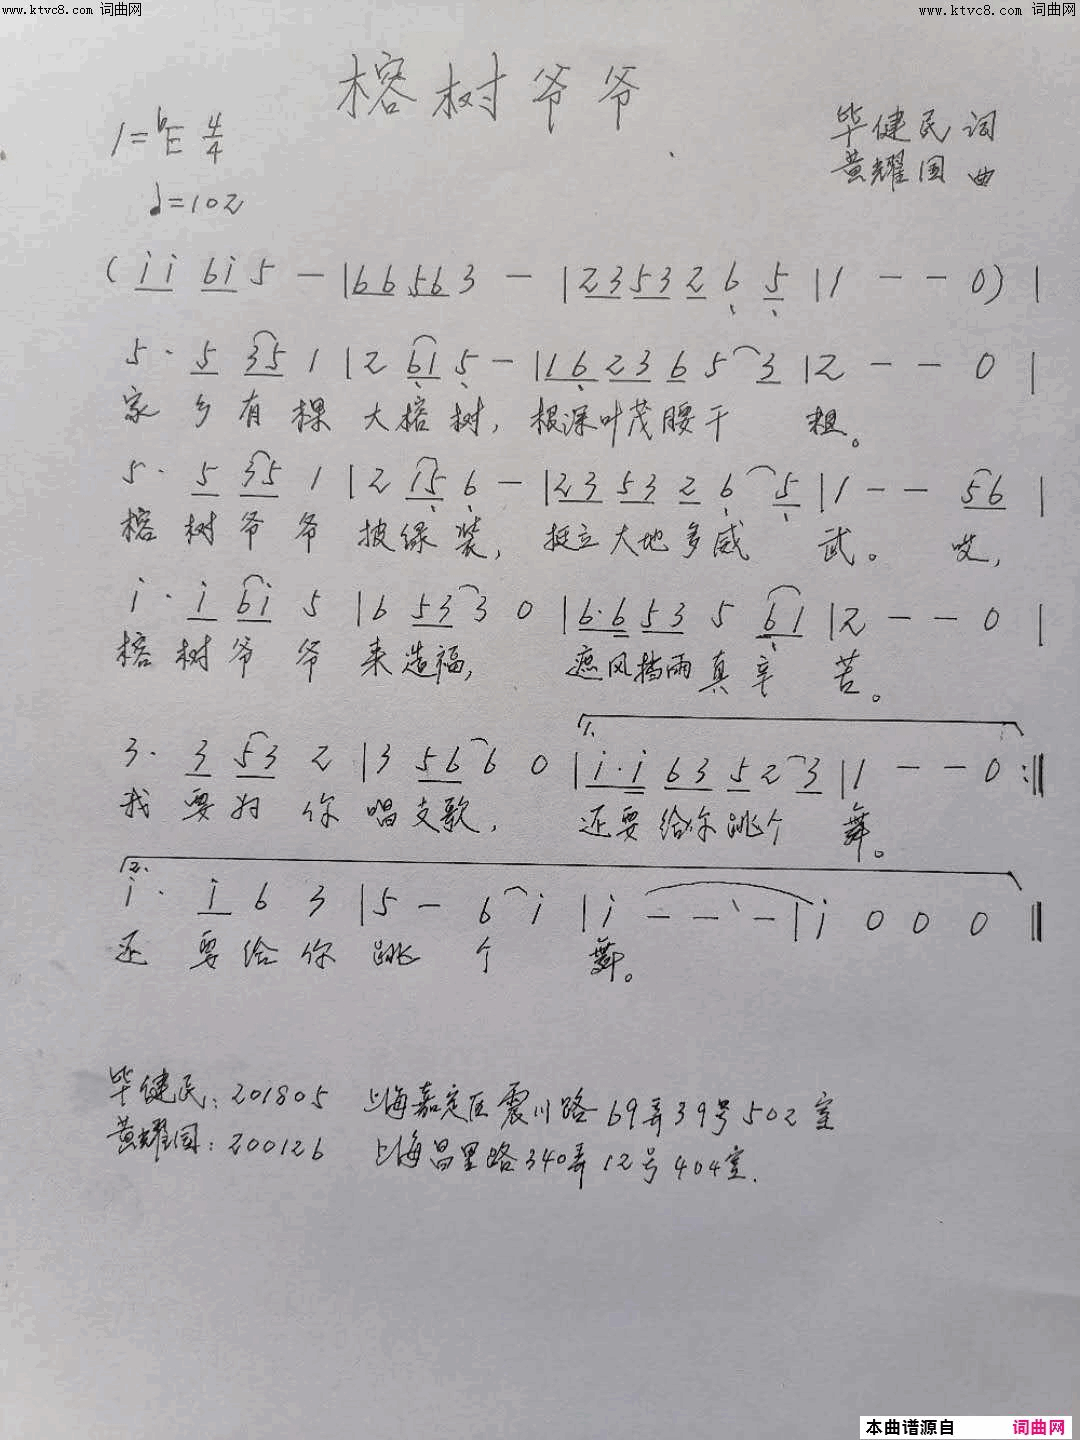 www.ktvc8.com 词曲网
www.ktvc8.com 词曲网
榕树爷爷
1=♭E 4/4
♩=102
毕健民 词
黄耀国 曲
(i i 6 i 5 - | 6 6 5 6 3 - | 2 3 5 3 2 6 5 | 1 - - 0) |
5· 5 3 5 1 | 2 6 1 5 - | 1 6 2 3 6 5 3 | 2 - - 0 |
家 乡 有 棵 大 榕 树, 根深叶茂腰干 粗。
5· 5 3 5 1 | 2 1 5 6 - | 2 3 5 3 2 6 5 | 1 - - 5 6 |
榕 树 爷 爷 披绿 装, 挺立大地多威 武。 哎,
i· i 6 i 5 | 6 5 3 3 0 | 6· 6 5 3 5 6 1 | 2 - - 0 |
榕 树 爷 爷 来 造福, 遮风挡雨真 辛 苦。
1.
3· 3 5 3 2 | 3 5 6 6 0 | i· i 6 3 5 2 3 | 1 - - 0 :‖
我 要 为 你 唱 支歌, 还要给你跳个 舞。
2.
i· i 6 3 | 5 - 6 i | i - - - | i 0 0 0 ‖
还 要 给 你 跳 个 舞。
毕健民: 201805 上海嘉定区震川路69弄39号502室
黄耀国: 200126 上海昌里路340弄12号404室.
本曲谱源自 词曲网